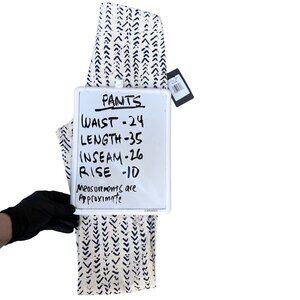 PANTS
WAIST - 24
LENGTH - 35
INSEAM - 26
RISE - 10
Measurements are
Approximate